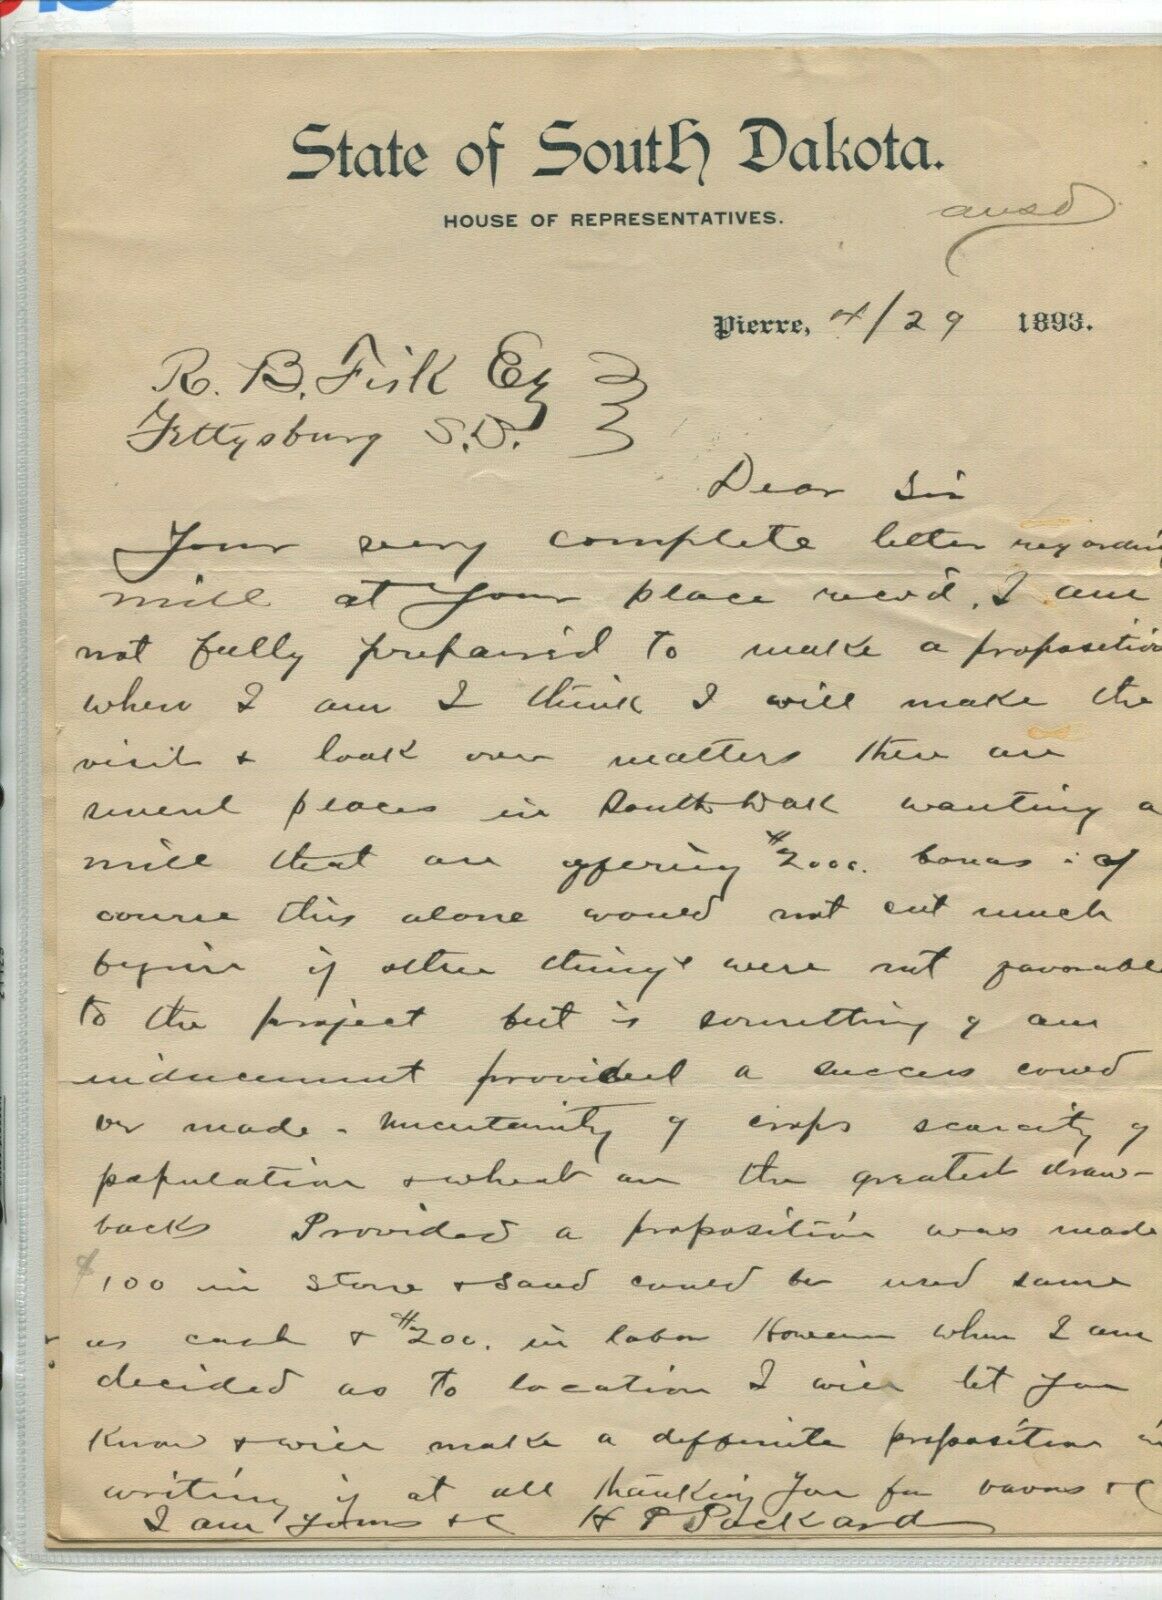 State of South Dakota.
HOUSE OF REPRESENTATIVES.
ansd
Pierre, 4/29 1893.
R. B. Fisk Esq
Gettysburg S.D.
Dear Sir
Your very complete letter regarding
mill at your place recv'd. I am
not fully prepaired to make a proposition
when I am I think I will make the
visit + look over matters there are
several places in South Dak wanting a
mill that are offering $2000. bonus : of
course this alone would not cut much
figure if other things were not favorable
to the project but is something of an
inducement provided a success could
be made - uncertainty of crops scarcity of
population + wheat are the greatest draw-
backs Provided a proposition was made
$100 in stone + sand could be used same
as cash + $200. in labor However when I am
decided as to location I will let you
know + will make a deffinite proposition in
writing if at all thanking you for favors + c
I am yours + c H P Packard